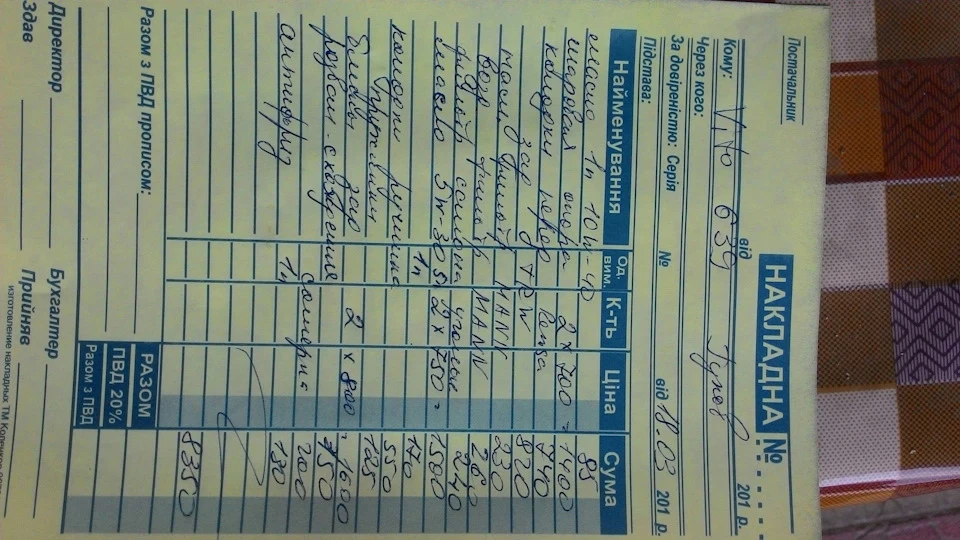 Постачальник
НАКЛАДНА №
від 201 р.
Кому: Vito 639
Через кого:
За довіреністю: Серія № від 18.03 201 р.
Підстава:
Найменування Од. вим. К-ть Ціна Сума
масло 1л 10w-40 85
шаровая опора 2 x 700 = 1400
колодки перед Remsa 740
зар TRW 820
масл фильтр MANN 230
возд фильтр MANN 260
фильтр салона угольн 240
масло 5w-30 5л 2 x 750 = 1500
1л 170
колодки ручника 550
пружинки 125
зар 2 x 800 = 1600
развал-схождения 750
200
антифриз 1л 130
8350
РАЗОМ
ПВД 20%
Разом з ПВД
Разом з ПВД прописом:
Директор Бухгалтер
Здав Прийняв
изготовление накладных ТМ